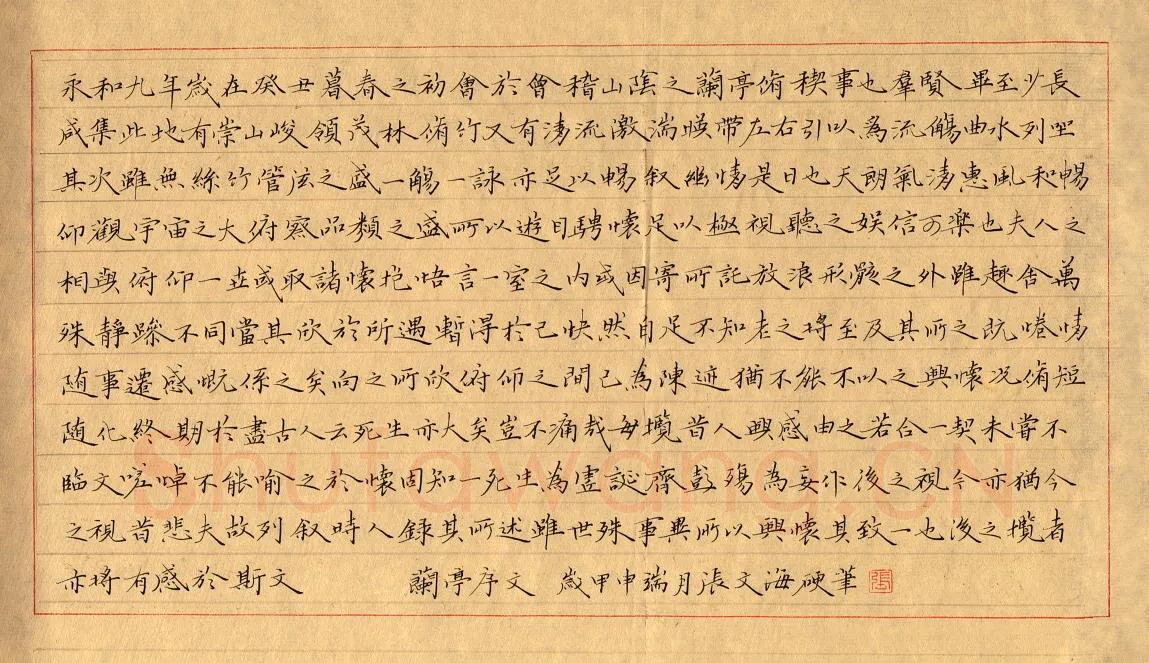 永和九年歲在癸丑暮春之初會於會稽山陰之蘭亭脩稧事也羣賢畢至少長
咸集此地有崇山峻領茂林脩竹又有清流激湍暎帶左右引以為流觴曲水列坐
其次雖無絲竹管弦之盛一觴一詠亦足以暢叙幽情是日也天朗氣清惠風和暢
仰觀宇宙之大俯察品類之盛所以遊目騁懷足以極視聽之娛信可樂也夫人之
相與俯仰一世或取諸懷抱悟言一室之內或因寄所託放浪形骸之外雖趣舍萬
殊靜躁不同當其欣於所遇暫得於己快然自足不知老之將至及其所之既惓情
随事遷感慨係之矣向之所欣俯仰之間已為陳迹猶不能不以之興懷況脩短
随化終期於盡古人云死生亦大矣豈不痛哉每攬昔人興感由之若合一契未嘗不
臨文嗟悼不能喻之於懷固知一死生為虛誕齊彭殤為妄作後之視今亦猶今
之視昔悲夫故列叙時人錄其所述雖世殊事異所以興懷其致一也後之攬者
亦將有感於斯文 蘭亭序文 歲甲申端月張文海硬筆
張
Shufawang.CN